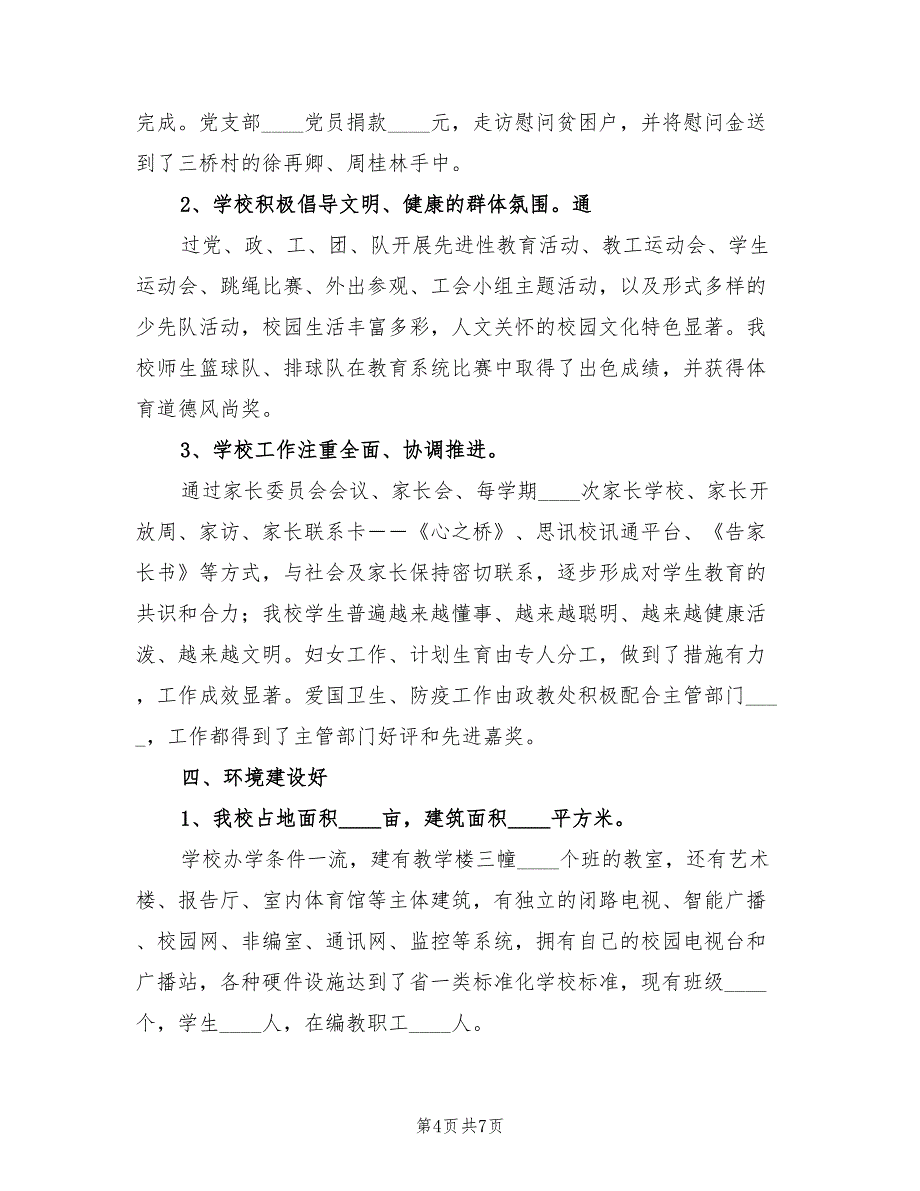 完成。党支部____党员捐款____元，走访慰问贫困户，并将慰问金送
到了三桥村的徐再卿、周桂林手中。
2、学校积极倡导文明、健康的群体氛围。通
过党、政、工、团、队开展先进性教育活动、教工运动会、学生
运动会、跳绳比赛、外出参观、工会小组主题活动，以及形式多样的
少先队活动，校园生活丰富多彩，人文关怀的校园文化特色显著。我
校师生篮球队、排球队在教育系统比赛中取得了出色成绩，并获得体
育道德风尚奖。
3、学校工作注重全面、协调推进。
通过家长委员会会议、家长会、每学期____次家长学校、家长开
放周、家访、家长联系卡——《心之桥》、思讯校讯通平台、《告家
长书》等方式，与社会及家长保持密切联系，逐步形成对学生教育的
共识和合力；我校学生普遍越来越懂事、越来越聪明、越来越健康活
泼、越来越文明。妇女工作、计划生育由专人分工，做到了措施有力
，工作成效显著。爱国卫生、防疫工作由政教处积极配合主管部门___
_，工作都得到了主管部门好评和先进嘉奖。
四、环境建设好
1、我校占地面积____亩，建筑面积____平方米。
学校办学条件一流，建有教学楼三幢____个班的教室，还有艺术
楼、报告厅、室内体育馆等主体建筑，有独立的闭路电视、智能广播
、校园网、非编室、通讯网、监控等系统，拥有自己的校园电视台和
广播站，各种硬件设施达到了省一类标准化学校标准，现有班级____
个，学生____人，在编教职工____人。
第4页共7页